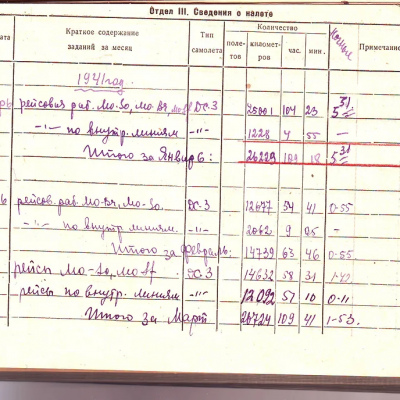 Отдел III. Сведения о налете
ата Краткое содержание заданий за месяц Тип самолета Количество Ночные Примечание
поле- тов километ- ров час. мин.
1941 год.
рейсовая раб. Мо-Sо, Мо ДС-3 104 23 5 31
-"- по внутр. линиям -"- 1228 4 55 —
Итого за Январь: 26229 109 18 5 31
рейсов. раб. Мо-Вч, Мо-Sо. ДС-3 12677 54 41 0-55
-"- по внутр. линиям. -"- 2062 9 05 -
Итого за февраль: 14739 63 46 0-55
рейсы Мо-Sо, ДС-3 14632 58 31
рейсы по внутр. линиям -"- 12092 51 10 0-11
Итого за Март 26724 109 41 1-53.